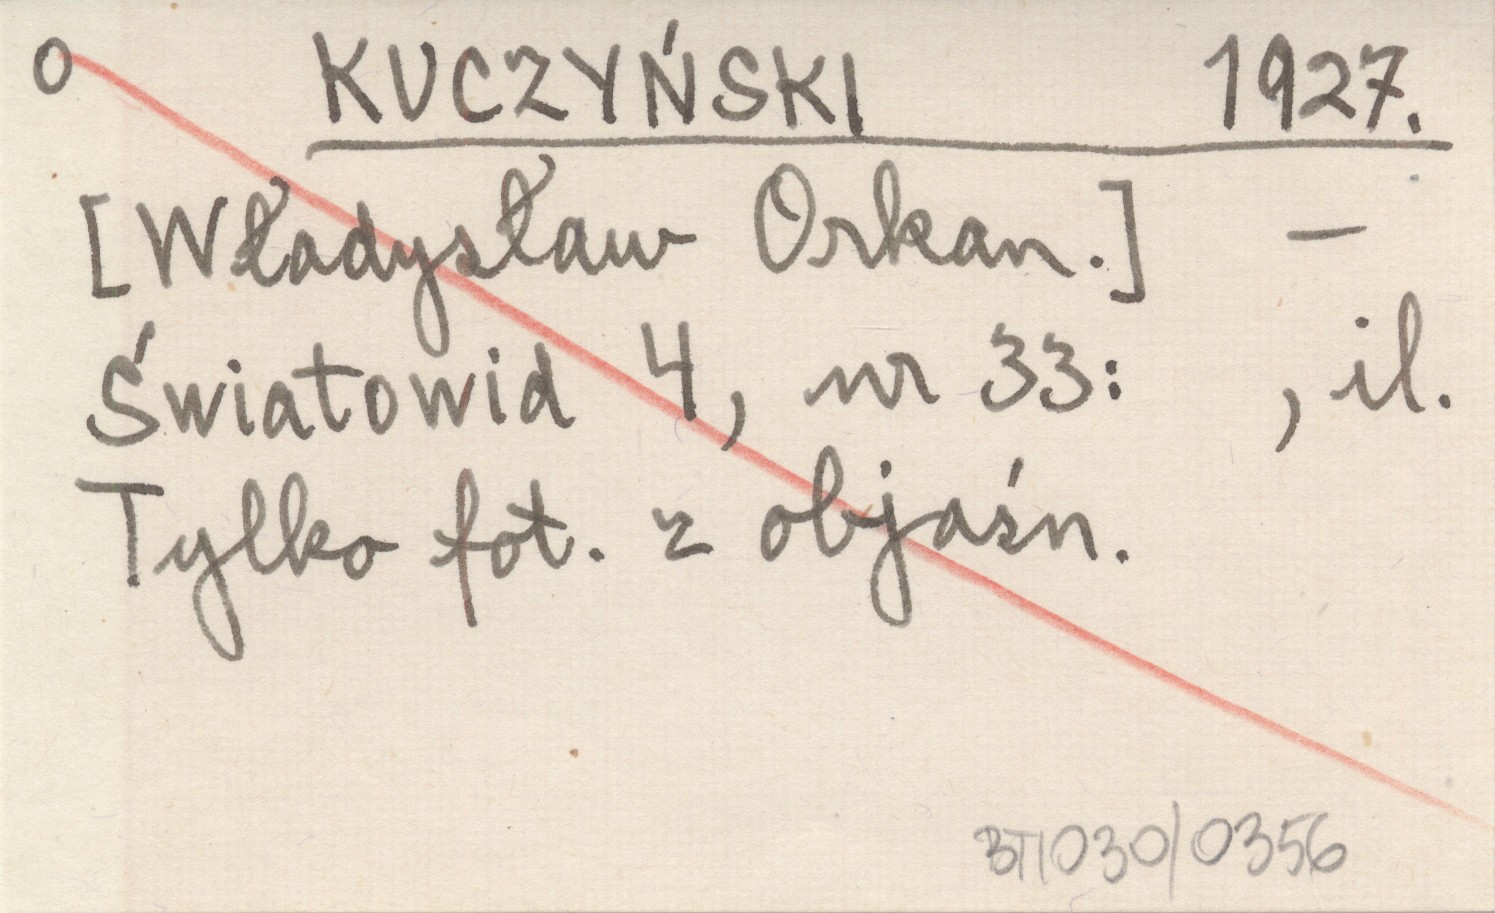 O KUCZYŃSKI 1927.
[Władysław Orkan.] –
Światowid 4, nr 33: , il.
Tylko fot. z objaśn.
BTI030/0356